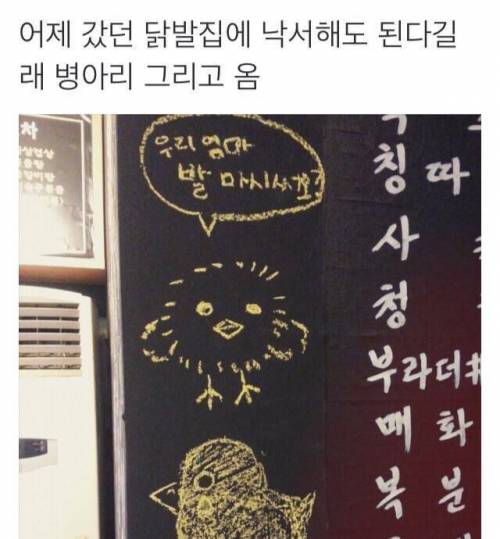 어제 갔던 닭발집에 낙서해도 된다길
래 병아리 그리고 옴
차
우리 엄마
발 마시써요?
칭 따
사
청
부라더#
매 화
복 분